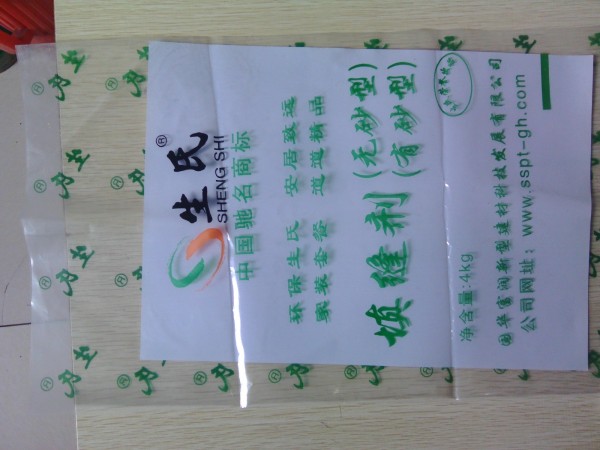 生氏®
SHENG SHI
中国驰名商标
环保生氏 安居致远
家装套餐 道道精品
填缝剂
(无砂型)
(有砂型)
净含量:4kg
国华富润新型建材科技发展有限公司
公司网址:www.sspt-gh.com